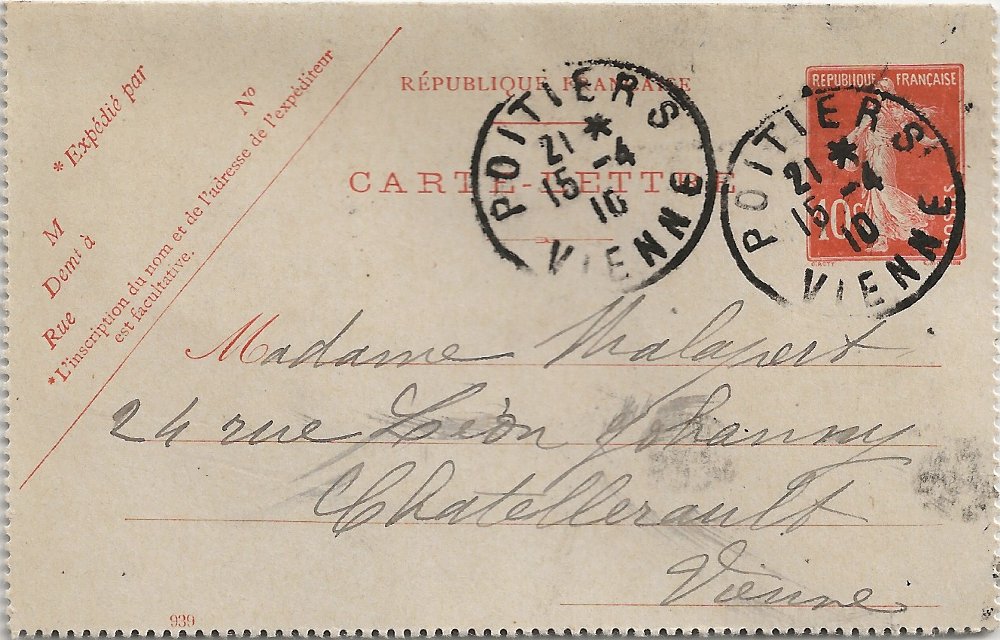 * Expédié par
N°
M
Demt à
Rue
* L'inscription du nom et de l'adresse de l'expéditeur
est facultative.
RÉPUBLIQUE FRANÇAISE
CARTE-LETTRE
POITIERS
21 *
15 -4
10
VIENNE
REPUBLIQUE FRANÇAISE
10c
POSTES
POITIERS
21 *
15 -4
10
VIENNE
Madame Malapert
24 rue Léon Johanny
Chatellerault
Vienne
939